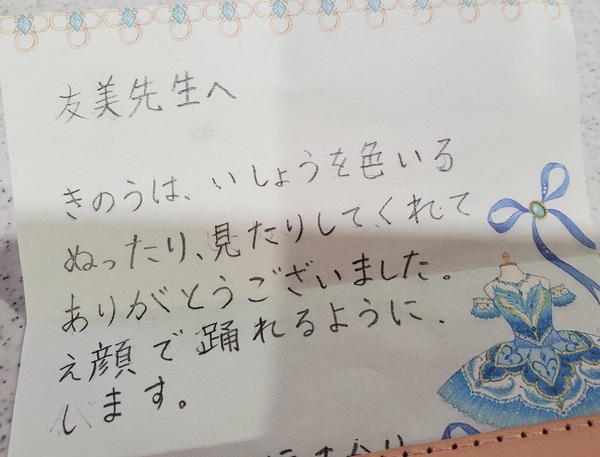 友美先生へ
きのうは、いしょうを色いろ
ぬったり、見たりしてくれて
ありがとうございました。
え顔で踊れるように、
します。